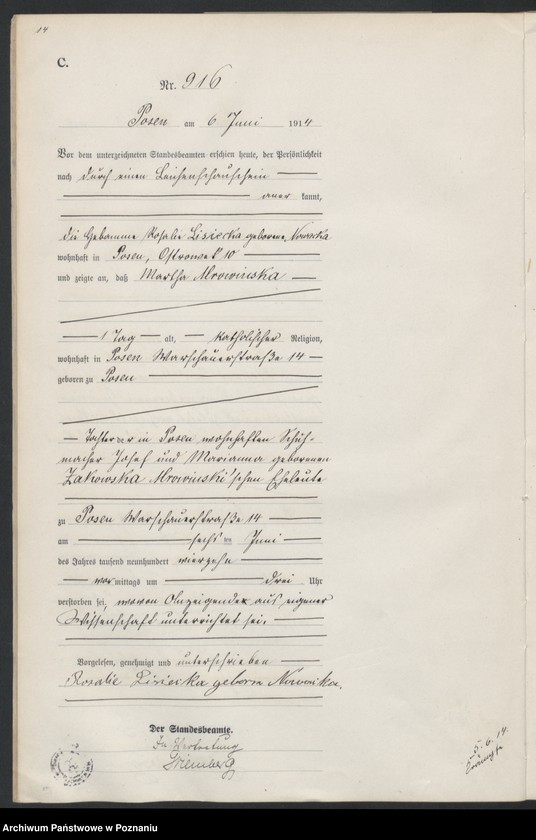 14
C.
Nr. 916
Posen am 6 Juni 1914
Vor dem unterzeichneten Standesbeamten erschien heute, der Persönlichkeit
nach durch einen Leichenschauschein
aner kannt,
die Hebamme Rosalie Lisiecka geborene Nowicka
wohnhaft in Posen, Ostrowek 10
und zeigte an, daß Martha Mrowinska
1 Tag alt, katholischer Religion,
wohnhaft in Posen Warschauerstraße 14
geboren zu Posen
Tochter der in Posen wohnhaften Schuh-
macher Josef und Marianna geborenen
Zakowska Mrowinski'schen Eheleute
zu Posen Warschauerstraße 14
am sechs ten Juni
des Jahres tausend neunhundert vierzehn
vor mittags um drei Uhr
verstorben sei, wovon Anzeigende aus eigener
Wissenschaft unterrichtet sei.
Vorgelesen, genehmigt und unterschrieben
Rosalie Lisiecka geborn Nowicka.
Der Standesbeamte.
In Vertretung
5.6.14.
Archiwum Państwowe w Poznaniu